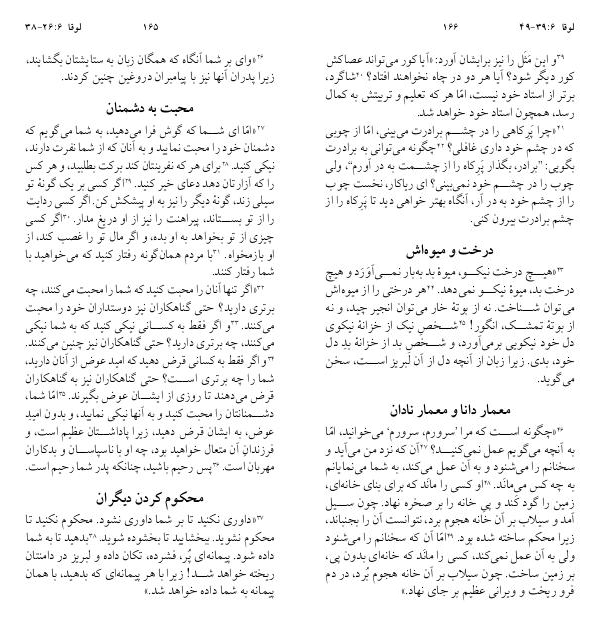 لوقا ۶:‏۲۶-۳۸
۱۶۵
۲۶«وای بر شما آنگاه که همگان زبان به ستایشتان بگشایند،
زیرا پدران آنها نیز با پیامبران دروغین چنین کردند.
محبت به دشمنان
۲۷«امّا ای شما که گوش فرا می‌دهید، به شما می‌گویم که
دشمنان خود را محبت نمایید و به آنان که از شما نفرت دارند،
نیکی کنید. ۲۸برای هر که نفرینتان کند برکت بطلبید، و هر کس
را که آزارتان دهد دعای خیر کنید. ۲۹اگر کسی بر یک گونهٔ تو
سیلی زند، گونهٔ دیگر را نیز به او پیشکش کن. اگر کسی ردایت
را از تو بستاند، پیراهنت را نیز از او دریغ مدار. ۳۰اگر کسی
چیزی از تو بخواهد به او بده، و اگر مال تو را غصب کند، از
او بازمخواه. ۳۱با مردم همان‌گونه رفتار کنید که می‌خواهید با
شما رفتار کنند.
۳۲«اگر تنها آنان را محبت کنید که شما را محبت می‌کنند، چه
برتری دارید؟ حتی گناهکاران نیز دوستداران خود را محبت
می‌کنند. ۳۳و اگر فقط به کسانی نیکی کنید که به شما نیکی
می‌کنند، چه برتری دارید؟ حتی گناهکاران نیز چنین می‌کنند.
۳۴و اگر فقط به کسانی قرض دهید که امید عوض از آنان دارید،
شما را چه برتری است؟ حتی گناهکاران نیز به گناهکاران
قرض می‌دهند تا روزی از ایشان عوض بگیرند. ۳۵امّا شما،
دشمنانتان را محبت کنید و به آنها نیکی نمایید، و بدون امید
عوض، به ایشان قرض دهید، زیرا پاداشتان عظیم است، و
فرزندانِ آن متعال خواهید بود، چه او با ناسپاسان و بدکاران
مهربان است. ۳۶پس رحیم باشید، چنانکه پدر شما رحیم است.
محکوم کردن دیگران
۳۷«داوری نکنید تا بر شما داوری نشود. محکوم نکنید تا
محکوم نشوید. ببخشایید تا بخشوده شوید. ۳۸بدهید تا به شما
داده شود. پیمانه‌ای پُر، فشرده، تکان داده و لبریز در دامنتان
ریخته خواهد شد! زیرا با هر پیمانه‌ای که بدهید، با همان
پیمانه به شما داده خواهد شد.»
۱۶۶
لوقا ۶:‏۳۹-۴۹
۳۹و این مَثَل را نیز برایشان آورد: «آیا کور می‌تواند عصاکش
کور دیگر شود؟ آیا هر دو در چاه نخواهند افتاد؟ ۴۰شاگرد،
برتر از استاد خود نیست، امّا هر که تعلیم و تربیتش به کمال
رسد، همچون استاد خود خواهد شد.
۴۱«چرا پَرِکاهی را در چشم برادرت می‌بینی، امّا از چوبی
که در چشم خود داری غافلی؟ ۴۲چگونه می‌توانی به برادرت
بگویی: ”برادر، بگذار پَرکاه را از چشمت به در آورم“، ولی
چوب را در چشم خود نمی‌بینی؟ ای ریاکار، نخست چوب
را از چشم خود به در آر، آنگاه بهتر خواهی دید تا پَرِکاه را از
چشم برادرت بیرون کنی.
درخت و میوه‌اش
۴۳«هیچ درخت نیکو، میوهٔ بد به‌بار نمی‌آوَرَد و هیچ
درخت بد، میوهٔ نیکو نمی‌دهد. ۴۴هر درختی را از میوه‌اش
می‌توان شناخت. نه از بوتهٔ خار می‌توان انجیر چید، و نه
از بوتهٔ تمشک، انگور! ۴۵شخصِ نیک از خزانهٔ نیکوی
دل خود نیکویی برمی‌آورد، و شخصِ بد از خزانهٔ بدِ دل
خود، بدی. زیرا زبان از آنچه دل از آن لبریز است، سخن
می‌گوید.
معمار دانا و معمار نادان
۴۶«چگونه است که مرا ’سرورم، سرورم‘ می‌خوانید، امّا
به آنچه می‌گویم عمل نمی‌کنید؟ ۴۷آن که نزد من می‌آید و
سخنانم را می‌شنود و به آن عمل می‌کند، به شما می‌نمایانم
به چه کس می‌ماند. ۴۸او کسی را مانَد که برای بنای خانه‌ای،
زمین را گود کَند و پیِ خانه را بر صخره نهاد. چون سیل
آمد و سیلاب بر آن خانه هجوم برد، نتوانست آن را بجنباند،
زیرا محکم ساخته شده بود. ۴۹امّا آن که سخنانم را می‌شنود
ولی به آن عمل نمی‌کند، کسی را مانَد که خانه‌ای بدون پی،
بر زمین ساخت. چون سیلاب بر آن خانه هجوم بُرد، در دم
فرو ریخت و ویرانی عظیم بر جای نهاد.»